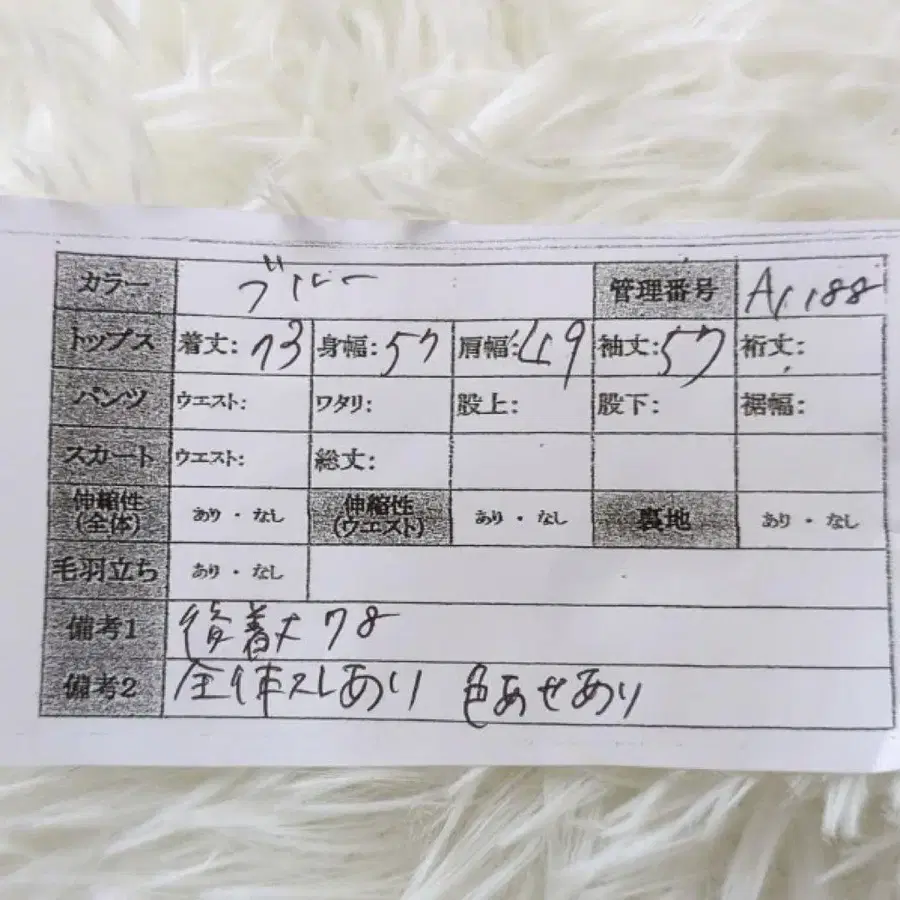 カラー ブルー 管理番号 A1188
トップス 着丈: 73 身幅: 57 肩幅: 49 袖丈: 57 裄丈:
パンツ ウエスト: ワタリ: 股上: 股下: 裾幅:
スカート ウエスト: 総丈:
伸縮性(全体) あり ・ なし 伸縮性(ウエスト) あり ・ なし 裏地 あり ・ なし
毛羽立ち あり ・ なし
備考1 後着丈 78
備考2 全体スレあり 色あせあり